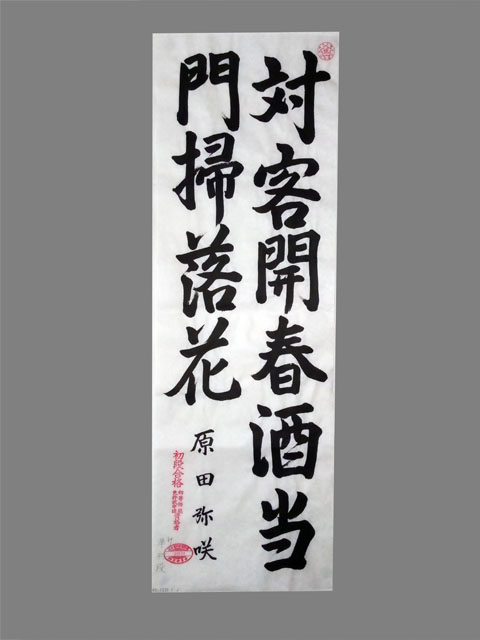 対客開春酒当
門掃落花
原田弥咲
初段合格